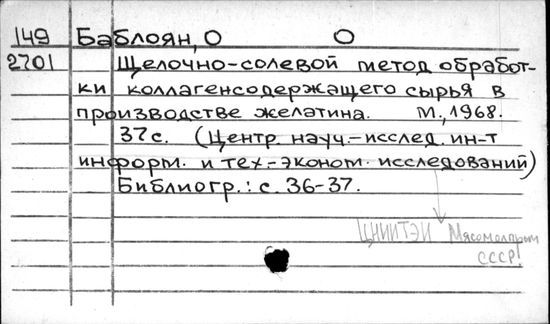 149 Баблоян, О О
2701 Щелочно-солевой метод обработ-
ки коллагенсодержащего сырья в
производстве желатина. М., 1968.
37с. (Центр. науч.-исслед. ин-т
информ. и тех.-эконом. исследований)
Библиогр.: с. 36-37.
ЦНИИТЭИ Мясомолпром
СССР!